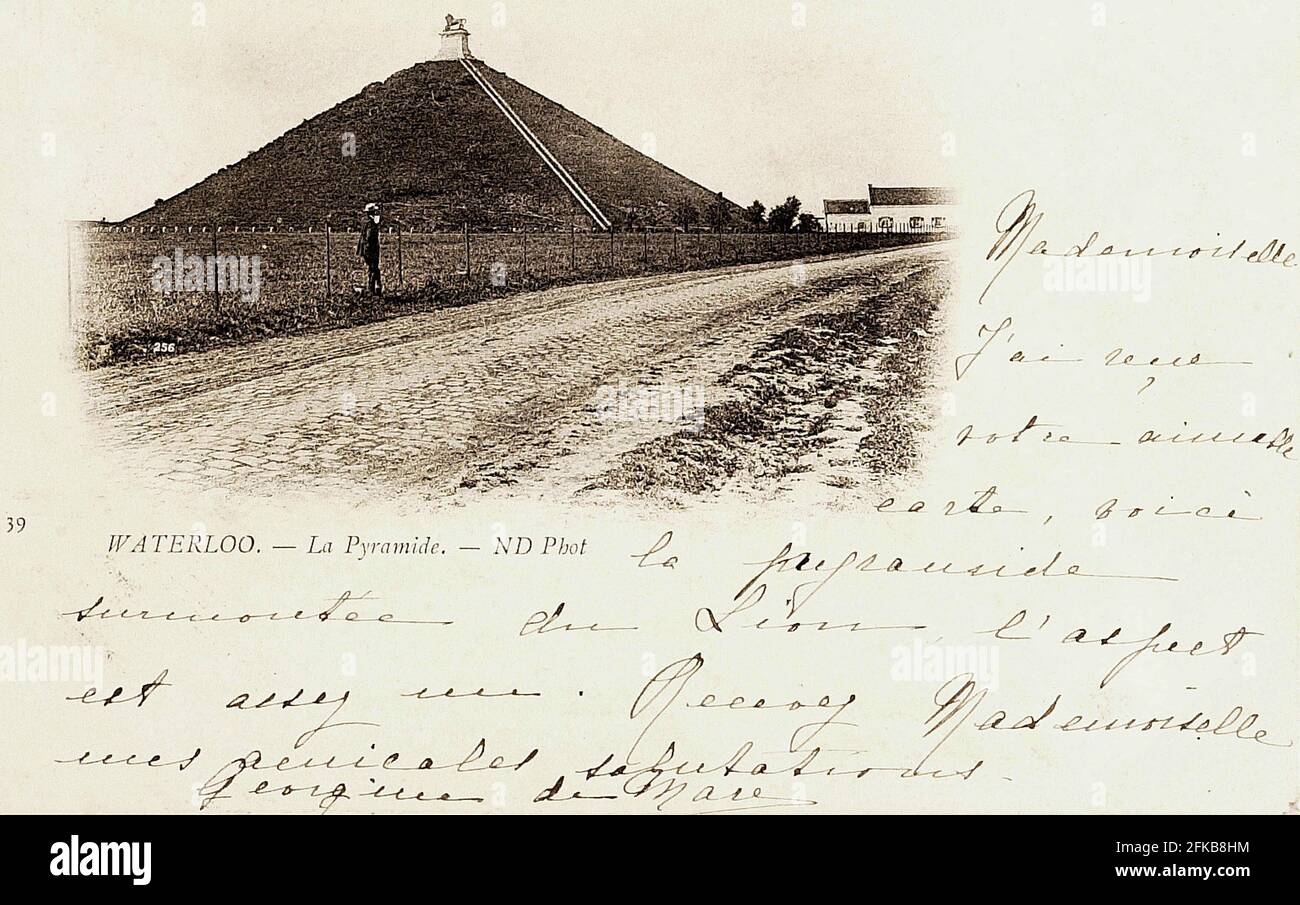 256
39
WATERLOO. — La Pyramide. — ND Phot
Mademoiselle
J'ai reçu
votre aimable
carte, voici
la pyramide
surmontée du Lion, l'aspect
est assez nu. Recevez Mademoiselle
mes amicales salutations.
Georgine de Mare
alamy
alamy
Image ID: 2FKB8HM
www.alamy.com